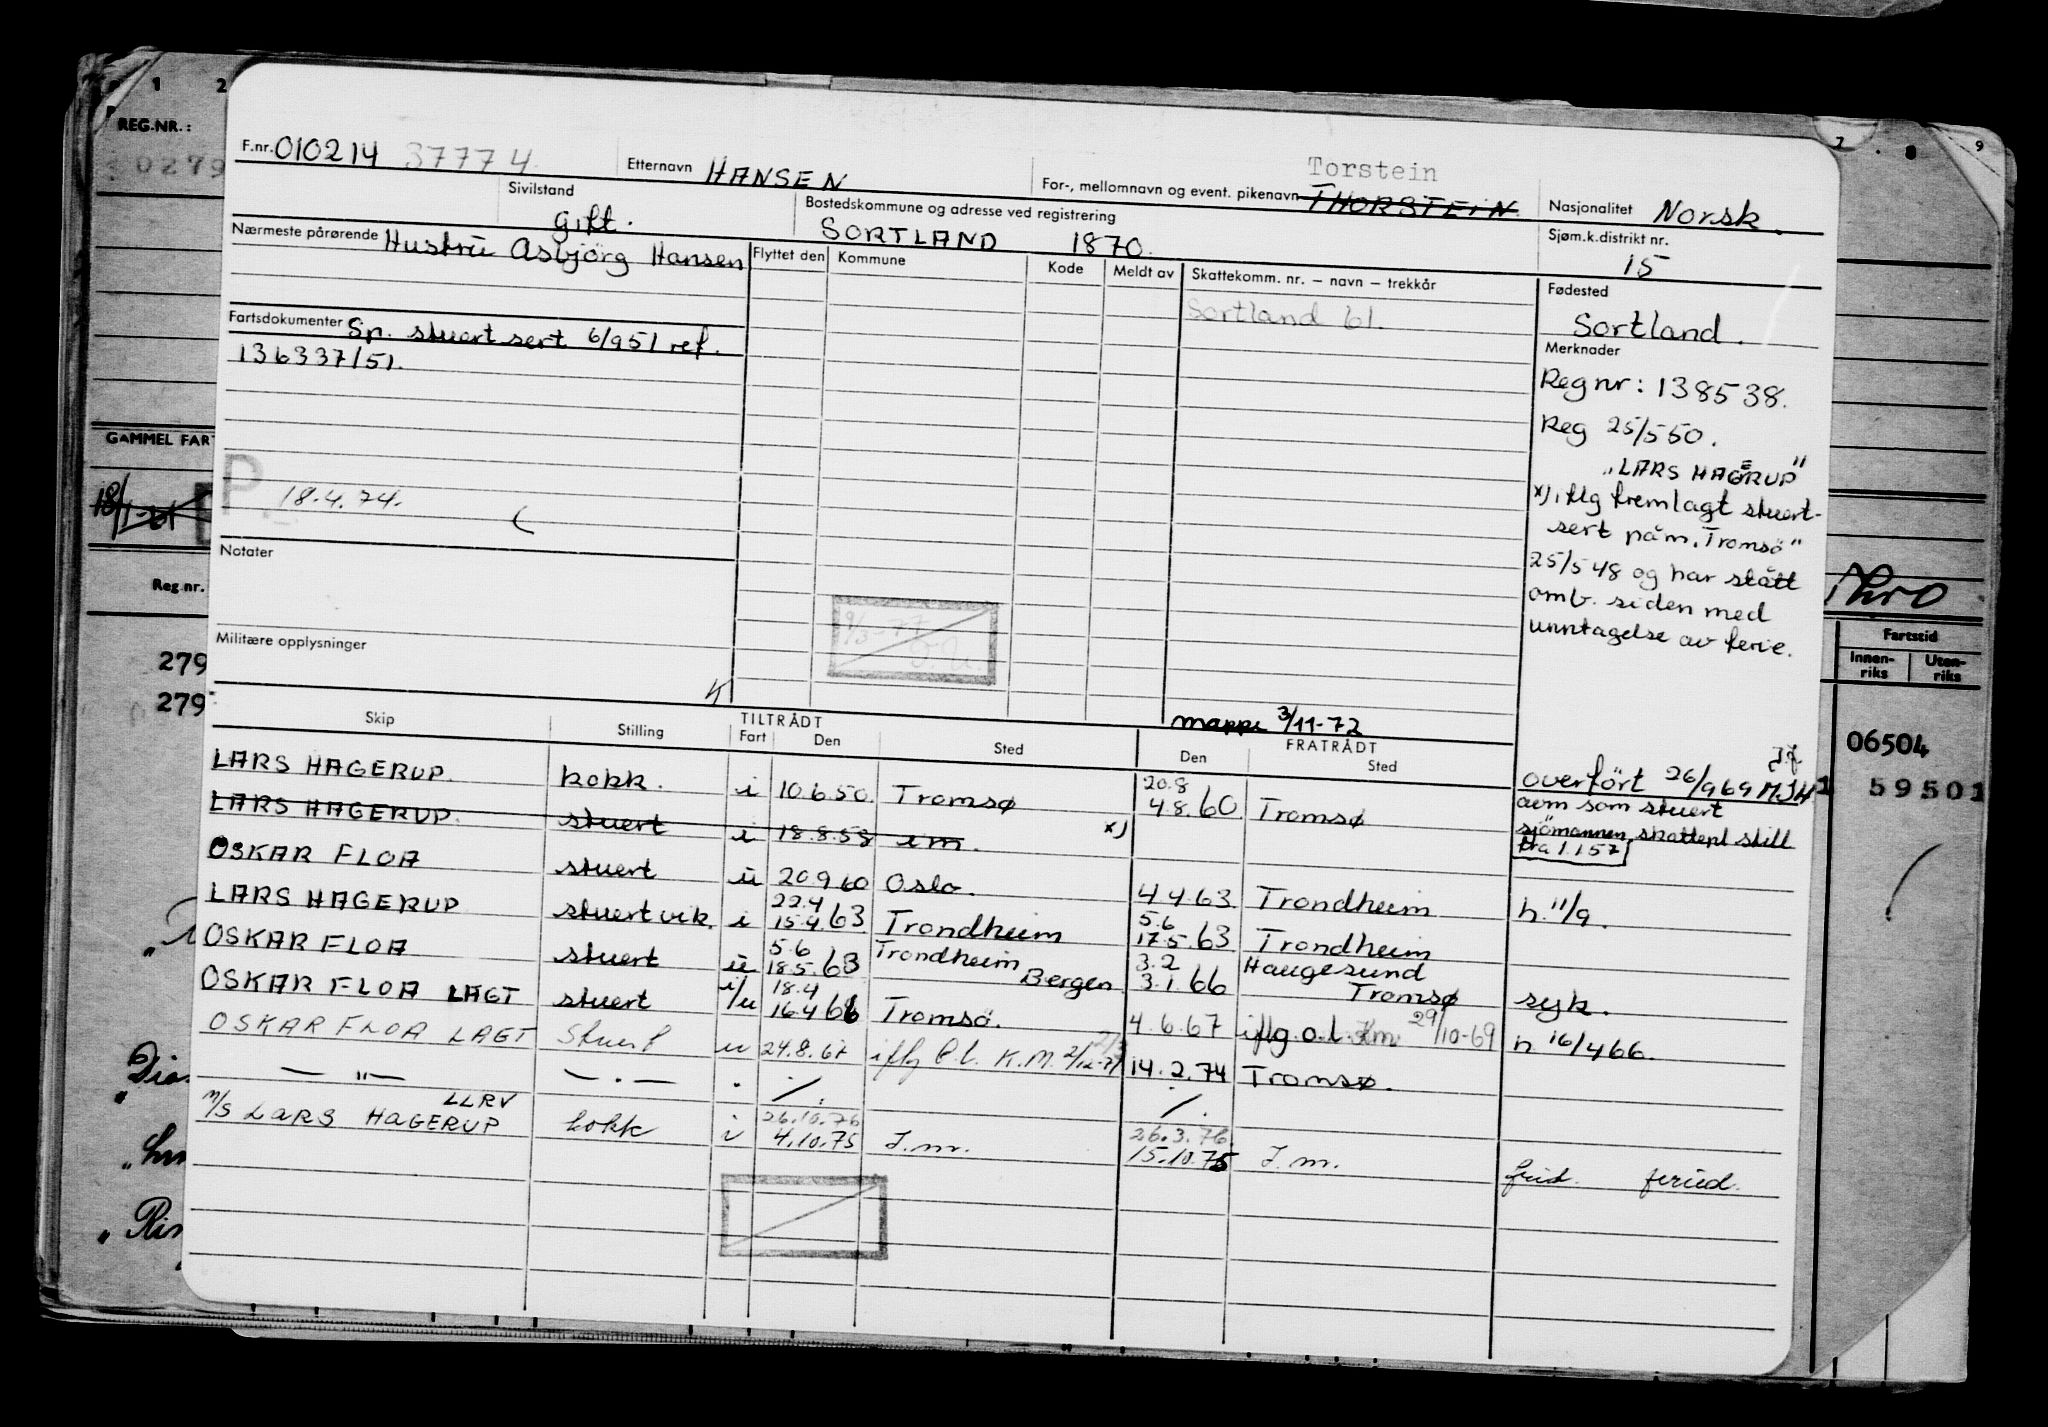 1 2 7 . 8 9
REG.NR.:
0279
F.nr. 010214 37774 Etternavn HANSEN For-, mellomnavn og event. pikenavn THORSTEIN Torstein Nasjonalitet Norsk.
Sivilstand Gift. Bostedskommune og adresse ved registrering SORTLAND 1870. Sjøm.k.distrikt nr. 15
Nærmeste pårørende Hustru Asbjörg Hansen Flyttet den Kommune Kode Meldt av Skattekomm. nr. – navn – trekkår Fødested
Sortland 61. Sortland.
Fartsdokumenter Sp. stuert sert 6/951 ref.
136337/51.
Merknader
Reg nr: 138538.
Reg 25/550.
„LARS HAGERUP"
x) iflg fremlagt stuert-
sert påm. Tromsö"
25/548 og har stått
omb. siden med
unntagelse av ferie.
GAMMEL FART
18/1-61
P 18.4.74.
Notater
Reg.nr.
Militære opplysninger
279
279
9/3-77
K
mappe 3/11-72
Fartstid
Innen-riks Uten-riks
06504
59501
Skip Stilling TILTRÅDT Fart Den Sted FRATRÅDT Den Sted
overført 26/969 MJH
LARS HAGERUP. kokk. i 10.6.50. Tromsø 20.8 4.8.60 Tromsø avm som stuert
LARS HAGERUP. stuert i 18.8.58 im. x) sjömannen, skattepl still fra 1.1 57
OSKAR FLOA stuert u 20960 Oslo. 4.4.63 Trondheim h. 11/9.
LARS HAGERUP stuert vik. i 22.4 15.4.63 Trondheim 5.6 17.5.63 Trondheim
OSKAR FLOA stuert u 5.6 18.5.63 Trondheim Bergen 3.2 3.1.66 Haugesund Tromsø syk.
OSKAR FLOA LAGT stuert i/u 18.4 16.4 66 Tromsö. 4.6.67 iflg o.l. Km 29/10-69 h 16/466.
OSKAR FLOA LAGT Stuert u 24.8.67 iflg b.l. K.M. 14.2.74 Tromsø.
— " — — . — . / . / .
M/S LARS HAGERUP LLRV kokk i 26.10.76 4.10.75 I.m. 26.3.76. 15.10.75 I.m. feried.